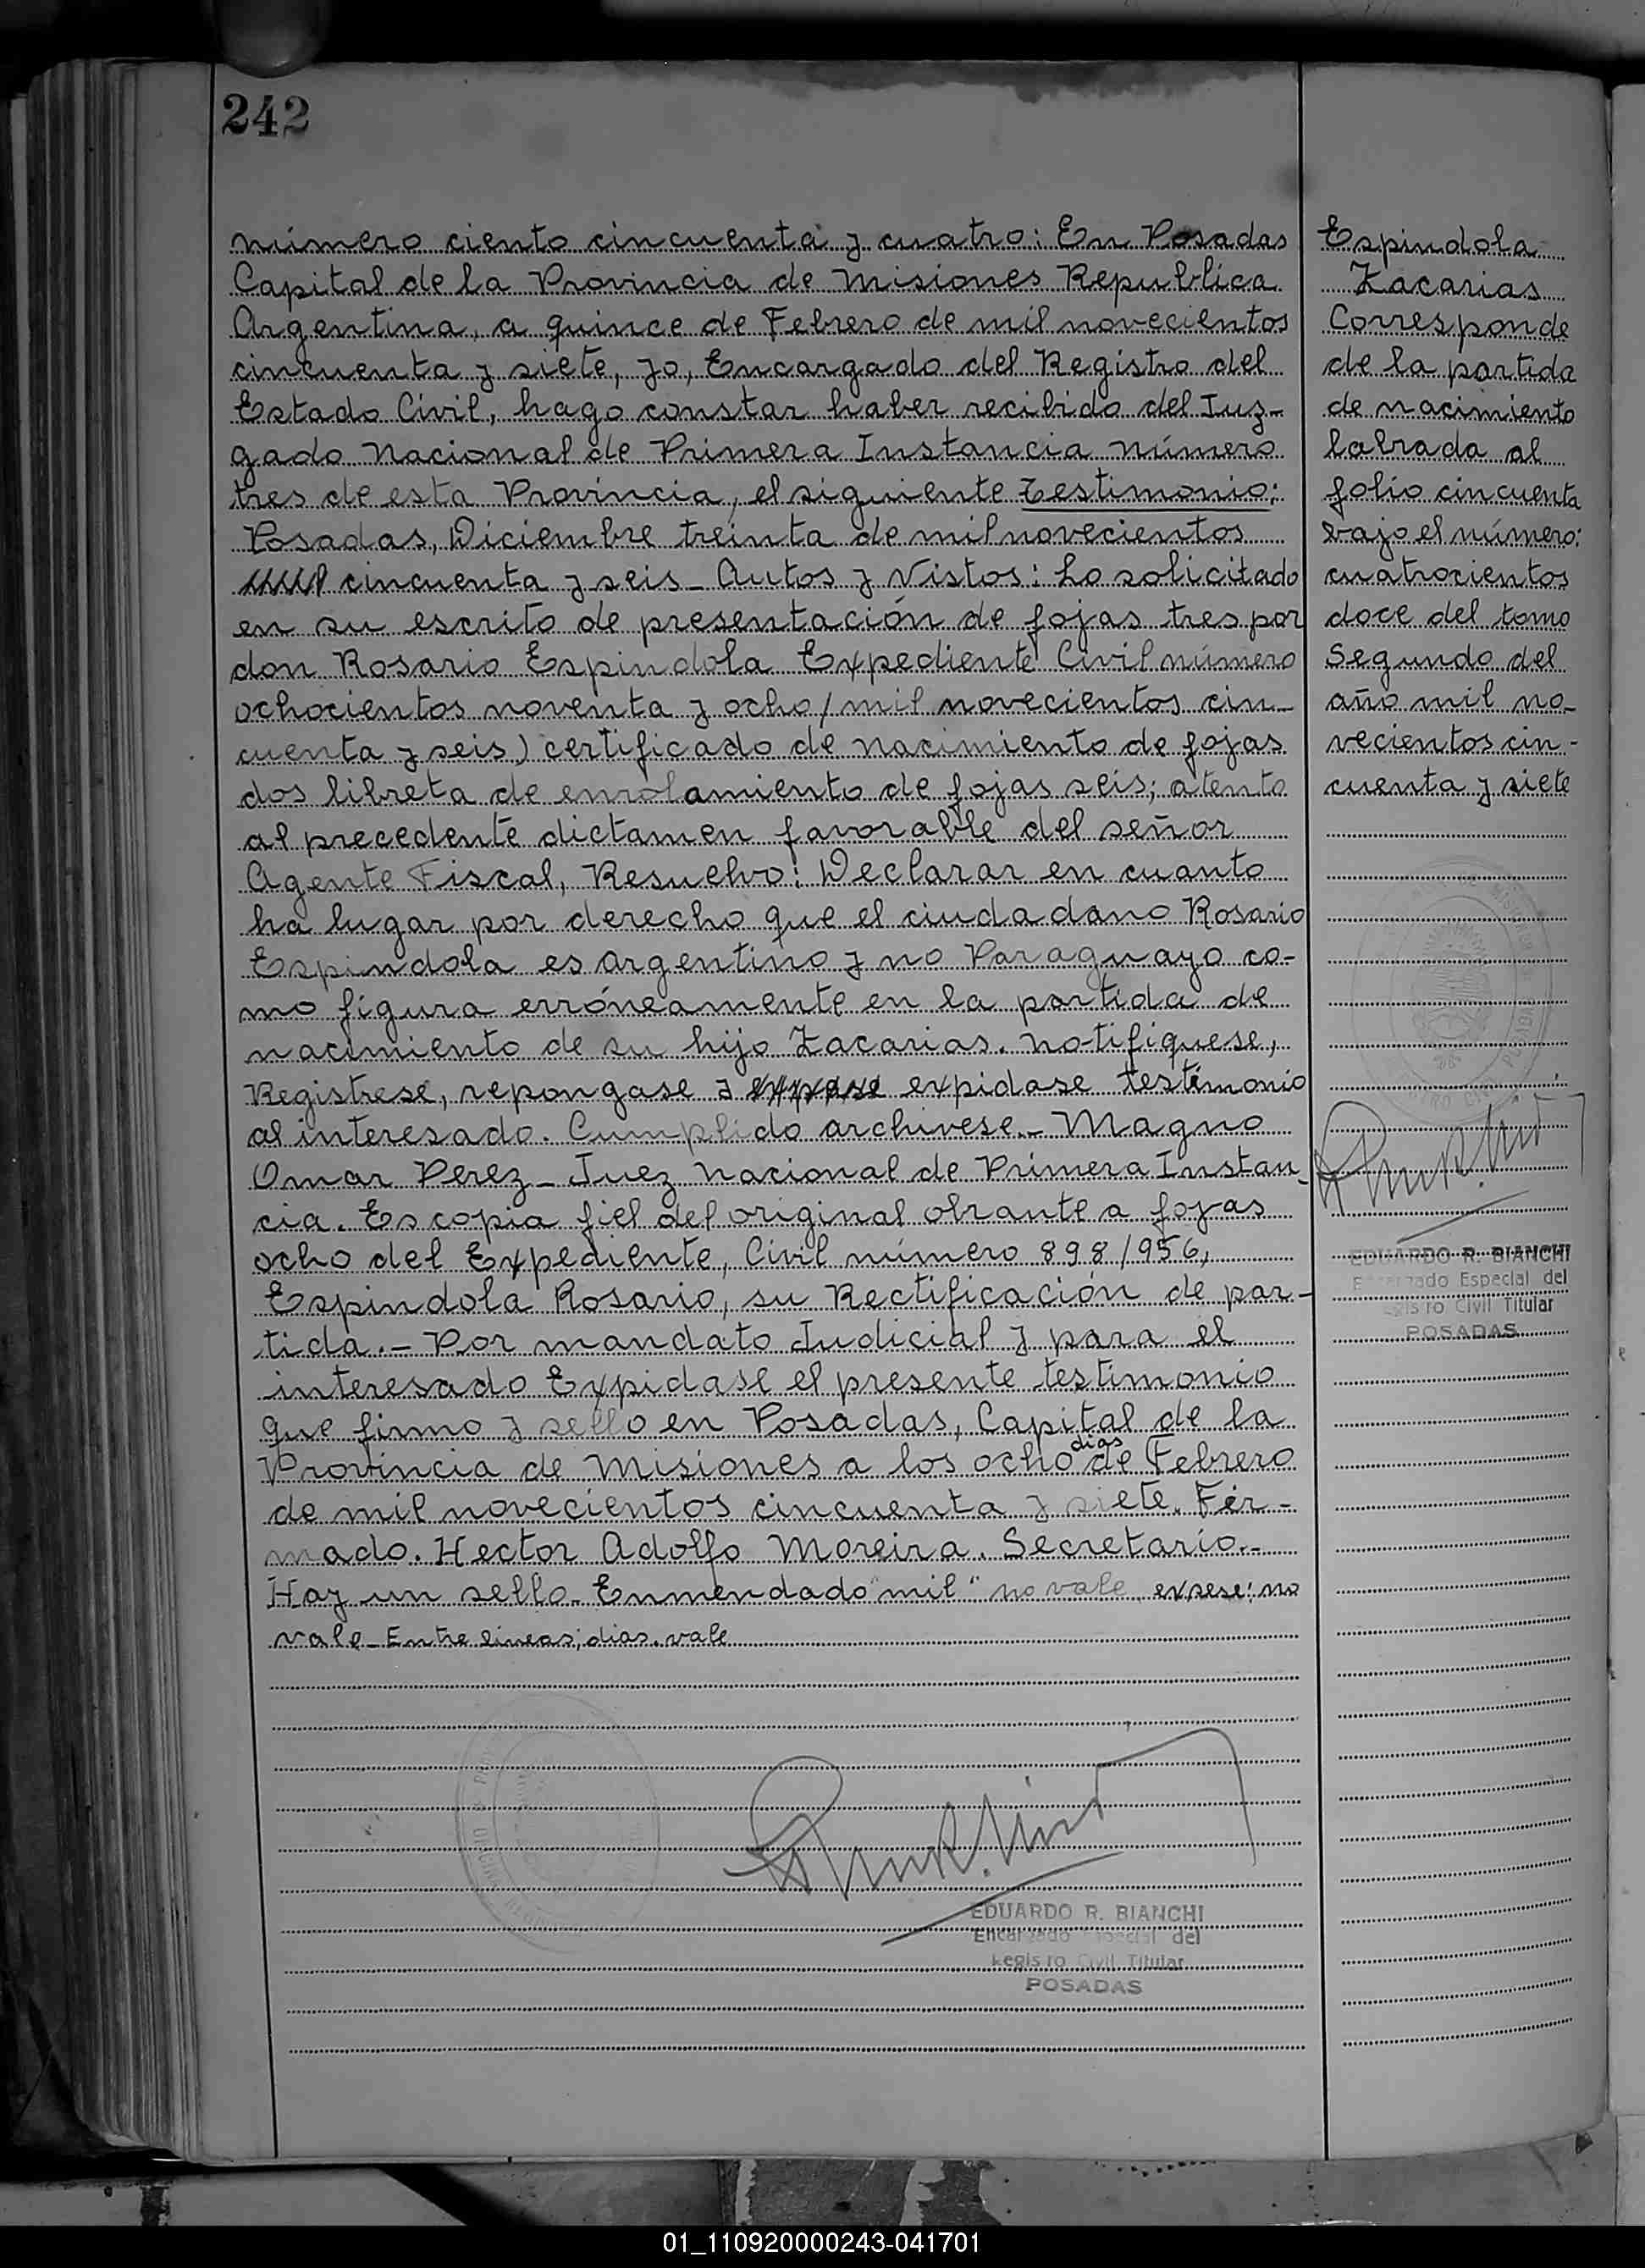 242
número ciento cincuenta y cuatro: En Posadas
Capital de la Provincia de Misiones Republica
Argentina, a quince de Febrero de mil novecientos
cincuenta y siete, yo, Encargado del Registro del
Estado Civil, hago constar haber recibido del Juz-
gado Nacional de Primera Instancia Número
tres de esta Provincia, el siguiente testimonio:
Posadas, Diciembre treinta de mil novecientos
mil cincuenta y seis_ Autos y Vistos: Lo solicitado
en su escrito de presentación de fojas tres por
don Rosario Espindola Expediente Civil número
ochocientos noventa y ocho/mil novecientos cin-
cuenta y seis) certificado de nacimiento de fojas
dos libreta de enrolamiento de fojas seis; atento
al precedente dictamen favorable del señor
Agente Fiscal, Resuelvo: Declarar en cuanto
ha lugar por derecho que el ciudadano Rosario
Espindola es argentino y no Paraguayo co-
mo figura erróneamente en la partida de
nacimiento de su hijo Zacarias. Notifiquese,
Registrese, repongase y expidase testimonio
al interesado. Cumplido archivese._ Magno
Omar Perez_ Juez Nacional de Primera Instan-
cia. Es copia fiel del original obrante a fojas
ocho del Expediente, Civil número 898/956,
Espindola Rosario, su Rectificación de par-
tida.- Por mandato Judicial y para el
interesado Expidase el presente testimonio
que firmo y sello en Posadas, Capital de la
Provincia de Misiones a los ocho días de Febrero
de mil novecientos cincuenta y siete. Fir-
mado. Hector Adolfo Moreira. Secretario.-
Hay un sello. Enmendado "mil" no vale exsese: no
vale_ Entre lineas; dias. vale
EDUARDO R. BIANCHI
Encargado Especial del
Registro Civil Titular
POSADAS
Espindola
Zacarias
Corresponde
de la partida
de nacimiento
labrada al
folio cincuenta
bajo el número:
cuatrocientos
doce del tomo
Segundo del
año mil no-
vecientos cin-
cuenta y siete
EDUARDO R. BIANCHI
Encargado Especial del
Registro Civil Titular
POSADAS
01_110920000243-041701